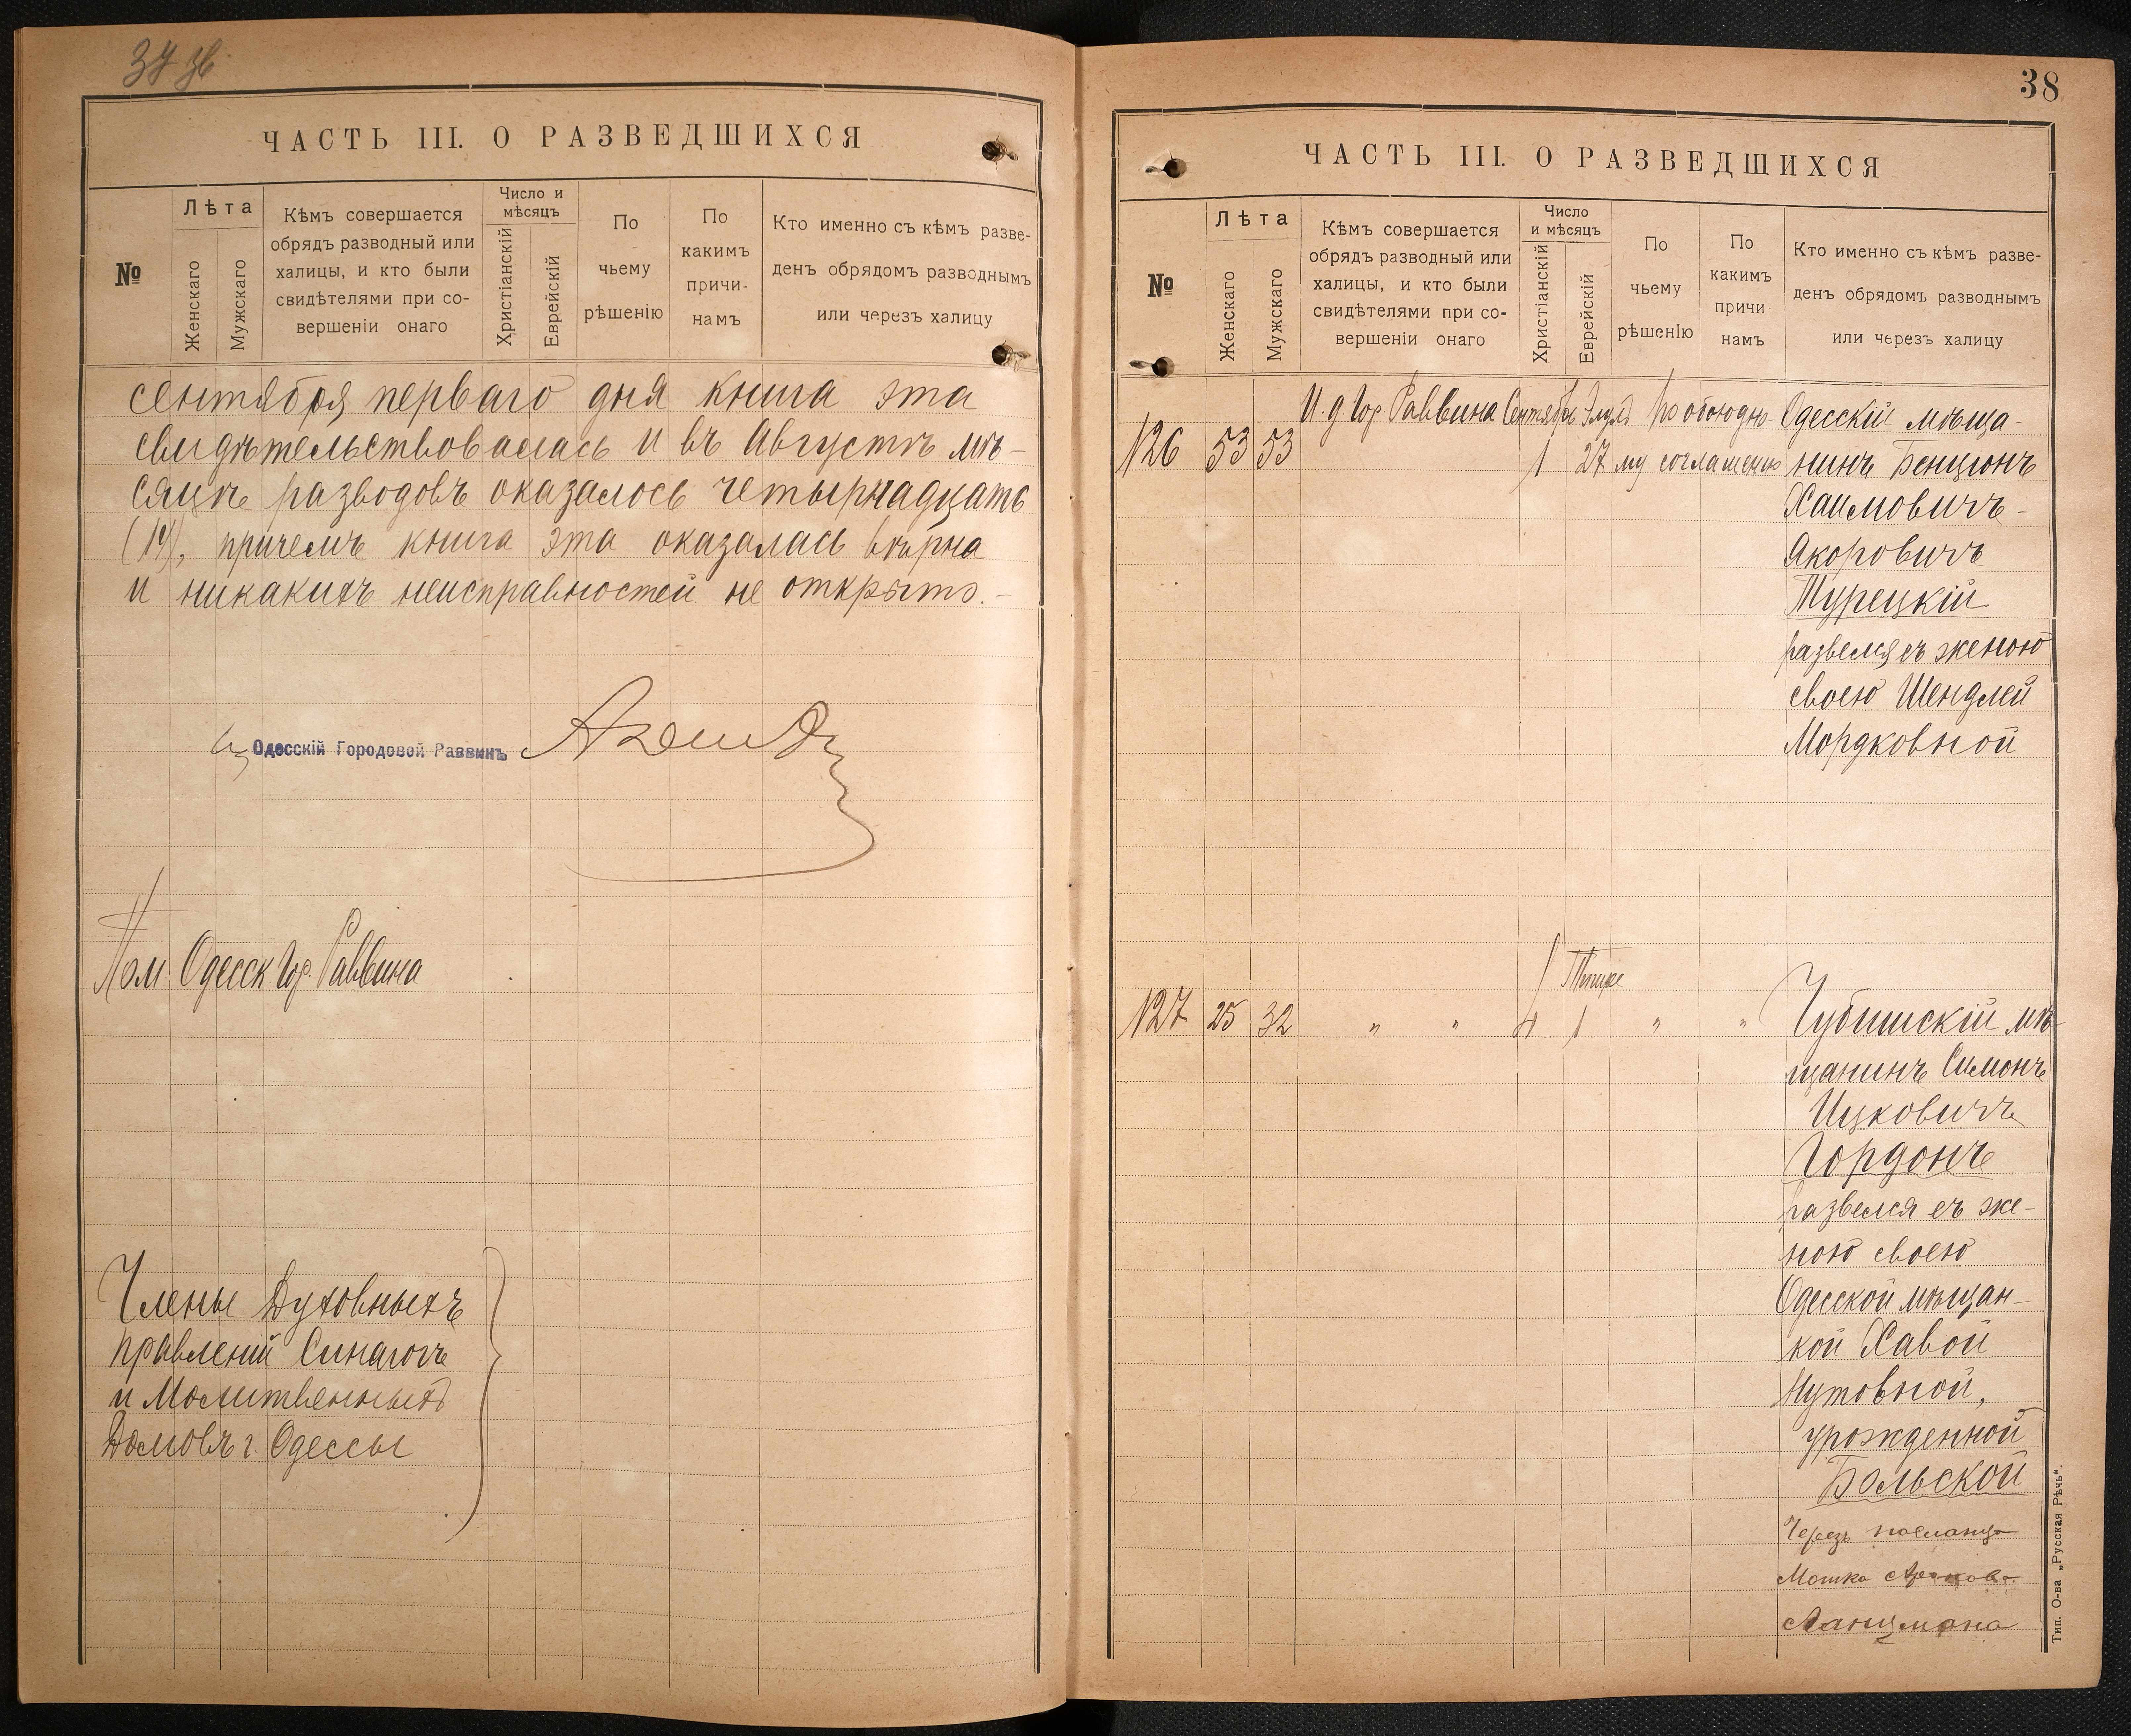 ЧАСТЬ III. О РАЗВЕДШИХСЯ
№
Лѣта
Женскаго
Мужскаго
Кѣмъ совершается
обрядъ разводный или
халицы, и кто были
свидѣтелями при со-
вершеніи онаго
Число и
мѣсяцъ
Христіанскій
Еврейскій
По
чьему
рѣшенію
По
какимъ
причи-
намъ
Кто именно съ кѣмъ разве-
денъ обрядомъ разводнымъ
или черезъ халицу
сентября перваго дня книга эта
свидѣтельствовалась и въ Августѣ мѣ-
сяцѣ разводовъ оказалось четырнадцать
(14), причемъ книга эта оказалась вѣрна
и никакихъ неисправностей не открыто.-
Одесскій Городовой Раввинъ
Пом. Одесск. Гор. Раввина
Члены Духовныхъ
правленій Синагогъ
и Молитвенныхъ
Домовъ г. Одессы
38
ЧАСТЬ III. О РАЗВЕДШИХСЯ
№
Лѣта
Женскаго
Мужскаго
Кѣмъ совершается
обрядъ разводный или
халицы, и кто были
свидѣтелями при со-
вершеніи онаго
Число
и мѣсяцъ
Христіанскій
Еврейскій
По
чьему
рѣшенію
По
какимъ
причи
намъ
Кто именно съ кѣмъ разве-
денъ обрядомъ разводнымъ
или черезъ халицу
И. д. Гор. Раввина Сентября Элулъ По обоюдно- Одесскій мѣща-
126 53 53 1 27 му соглашенію нинъ Бенціонъ
Хаимовичъ-
Якоровичъ
Турецкій
развелся съ женою
своею Шендлей
Мордковной
Тишре
127 25 32 " " 4 1 " " Чубишскій мѣ-
щанинъ Симонъ
Ицковичъ
Гордонъ
развелся съ же-
ною своею
Одесской мѣщан-
кой Хавой
Нутовной,
урожденной
Больской
Черезъ посланца
Мошка
Ланцмана
Тип. О-ва „Русская Рѣчь“.